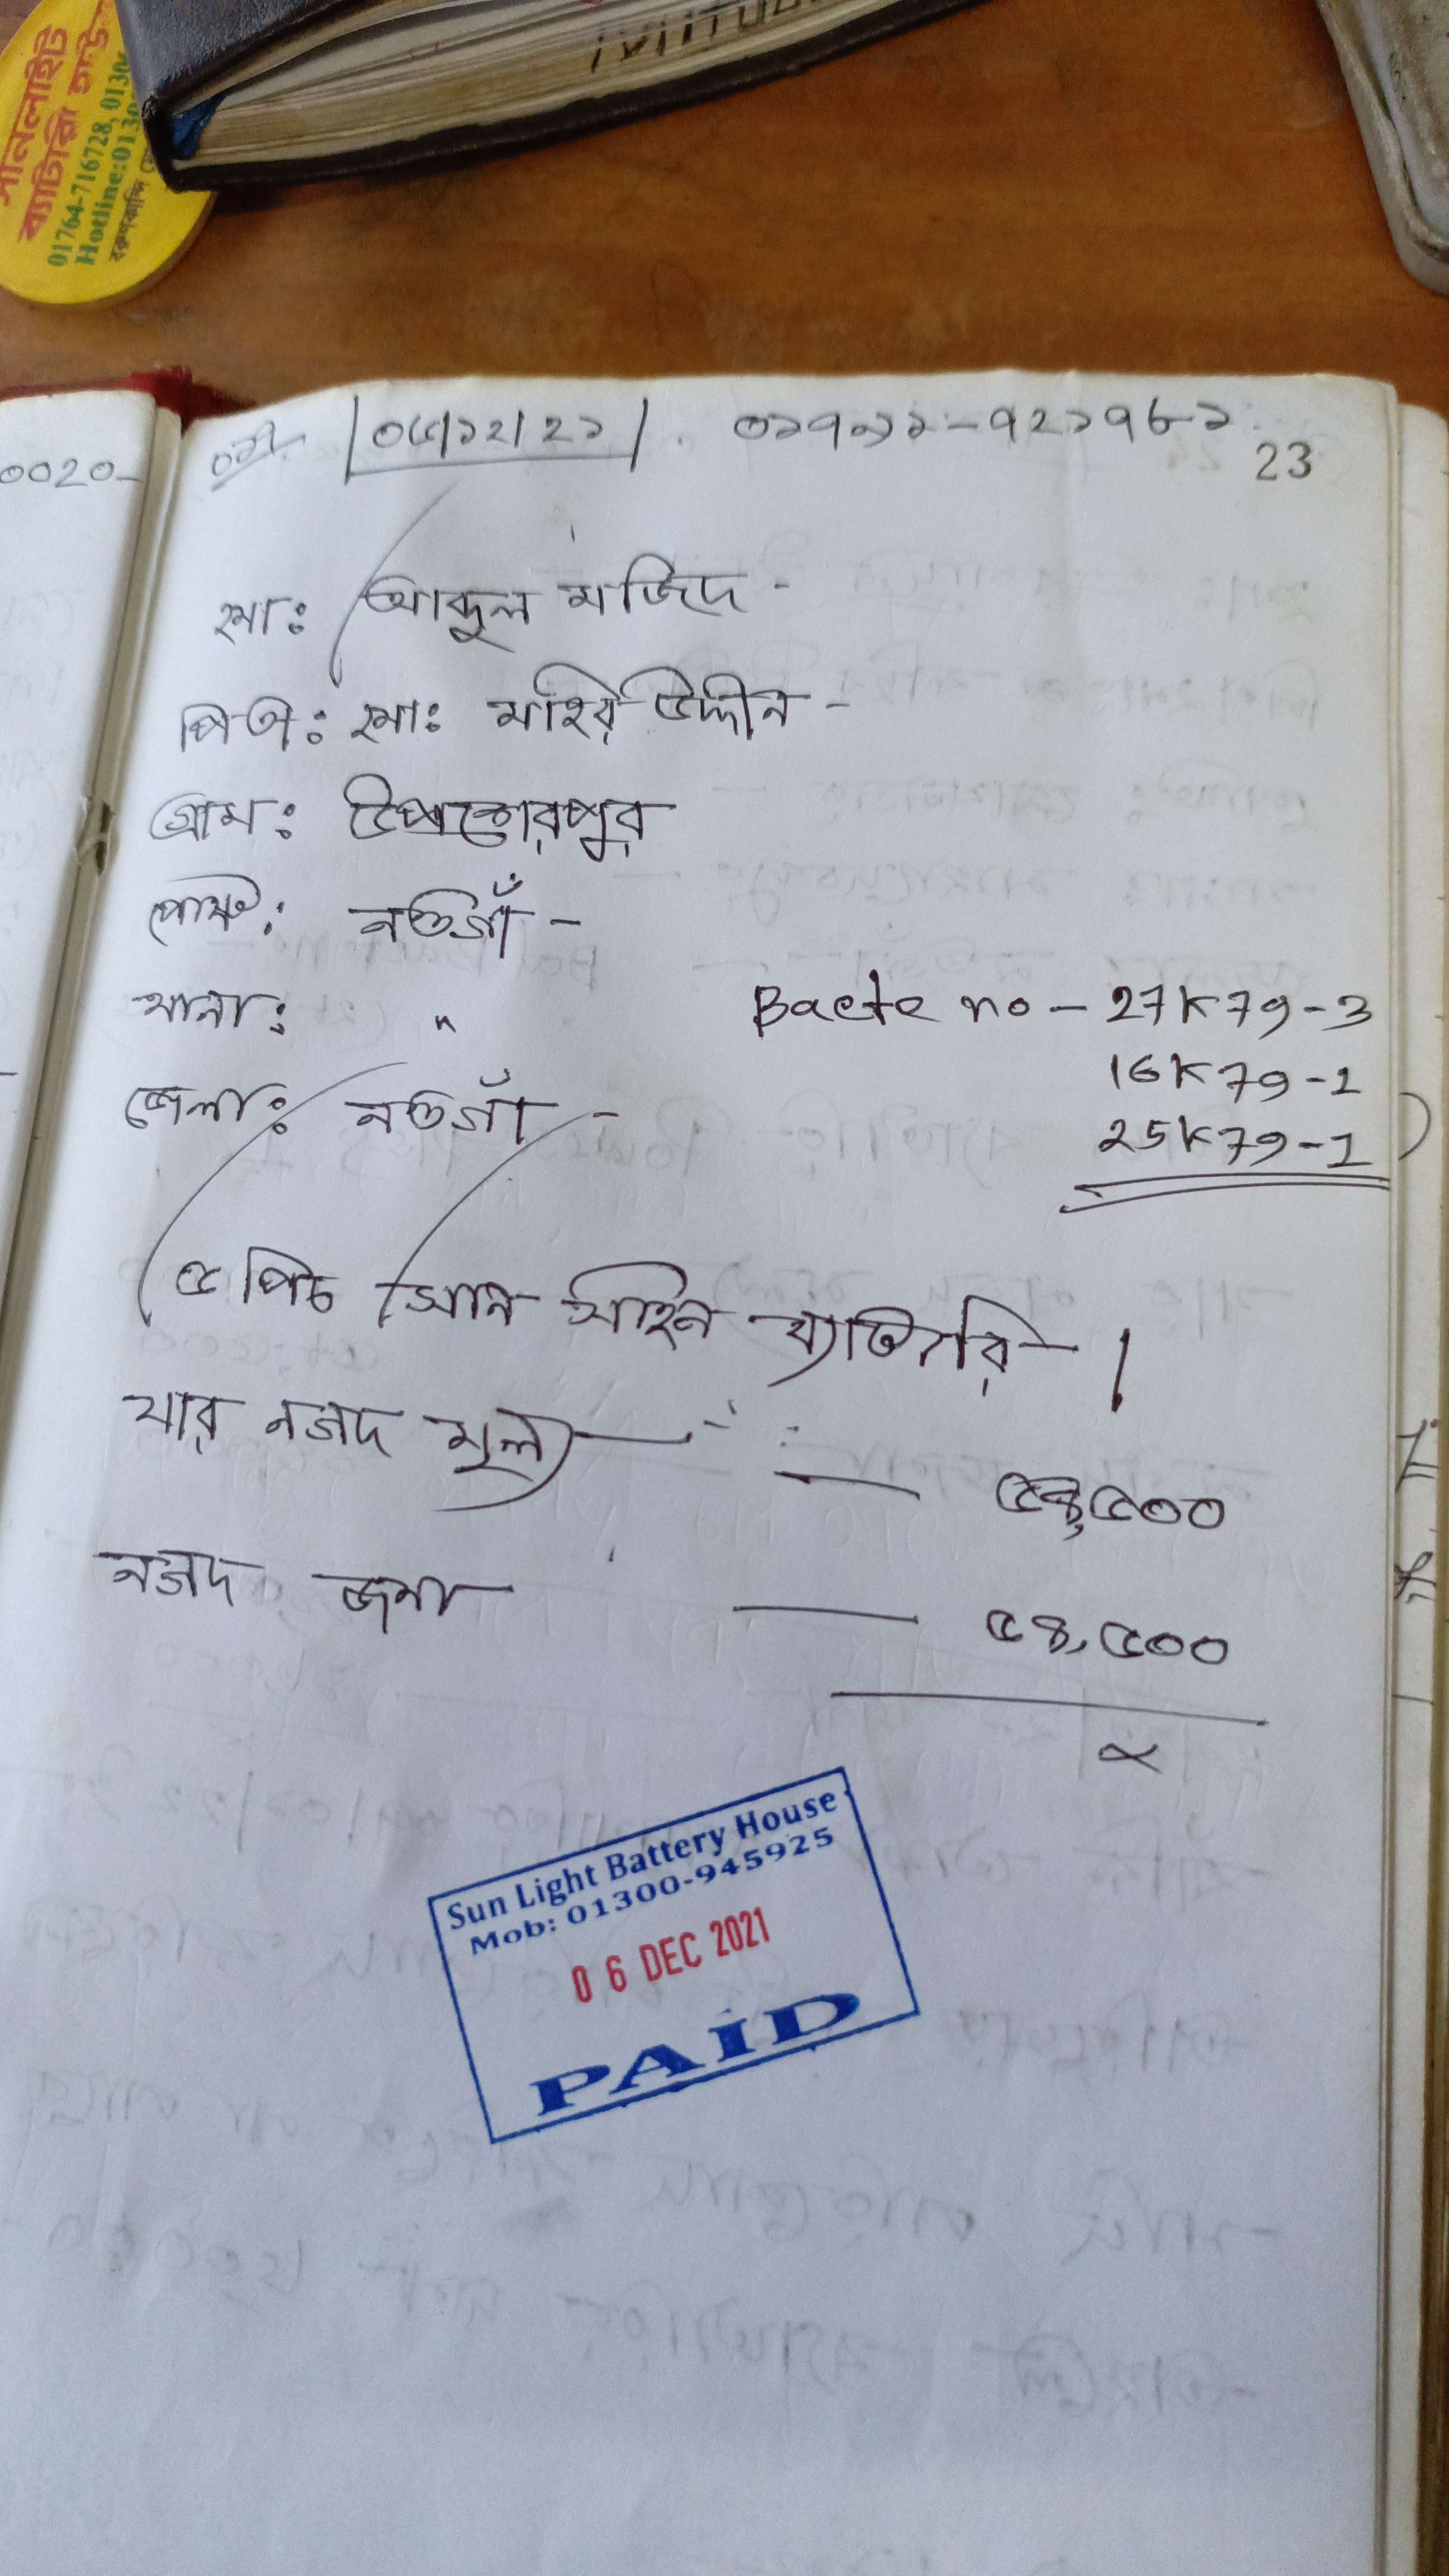 সানলাইট
ব্যাটারী হাউ
01764-716728, 0130
Hotline:0130
0020-
০৫/১২/২১ ০১৭৯১-৭২১৭৮১
23
মোঃ আব্দুল মজিদ -
পিতা: মোঃ মহির উদ্দীন -
গ্রাম:
পোষ্ট: নওগাঁ -
থানা: "
জেলা: নওগাঁ -
Bacte no - 27K79-3
16K79-1
25K79-1
৫ পিচ সান সাইন ব্যাটারি।
যার নগদ মূল্য — ৫৪,৫০০
নগদ জমা — ৫৪,৫০০
Sun Light Battery House
Mob: 01300-945925
06 DEC 2021
PAiD